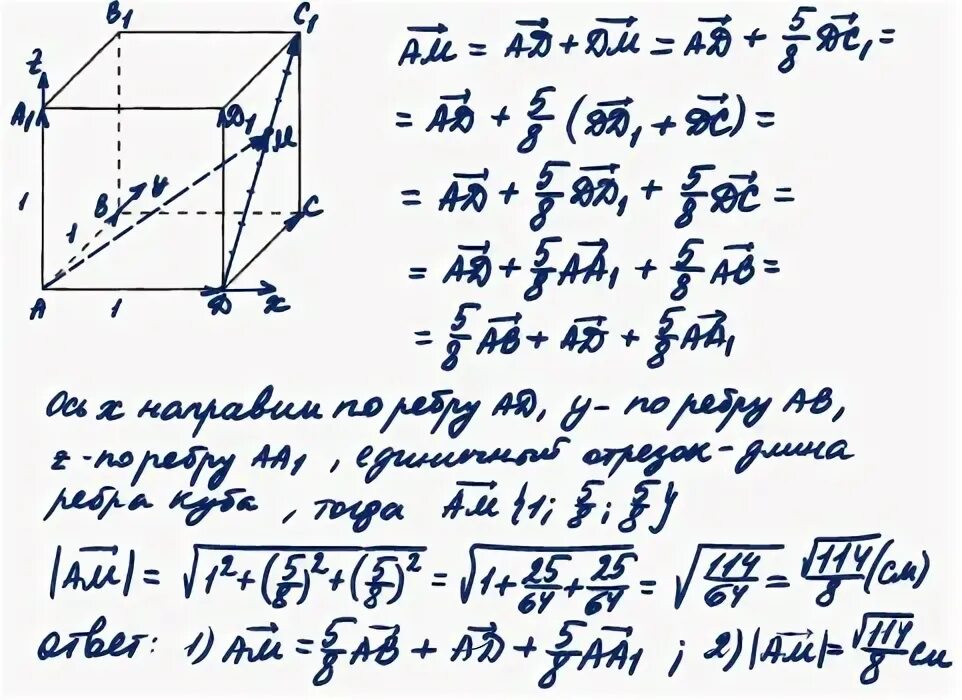 B₁ C₁
z
A₁ D₁ M
1 B y C
1
A 1 D x
AM⃗ = AD⃗ + DM⃗ = AD⃗ + 5/8 DC₁⃗ =
= AD⃗ + 5/8 (DD₁⃗ + DC⃗) =
= AD⃗ + 5/8 DD₁⃗ + 5/8 DC⃗ =
= AD⃗ + 5/8 AA₁⃗ + 5/8 AB⃗ =
= 5/8 AB⃗ + AD⃗ + 5/8 AA₁⃗
Ось x направим по ребру AD, y - по ребру AB,
z - по ребру AA₁, единичный отрезок - длина
ребра куба, тогда AM⃗ {1; 5/8; 5/8}
|AM⃗| = √(1² + (5/8)² + (5/8)²) = √(1 + 25/64 + 25/64) = √(114/64) = √114/8 (см)
ответ: 1) AM⃗ = 5/8 AB⃗ + AD⃗ + 5/8 AA₁⃗ ; 2) |AM⃗| = √114/8 см